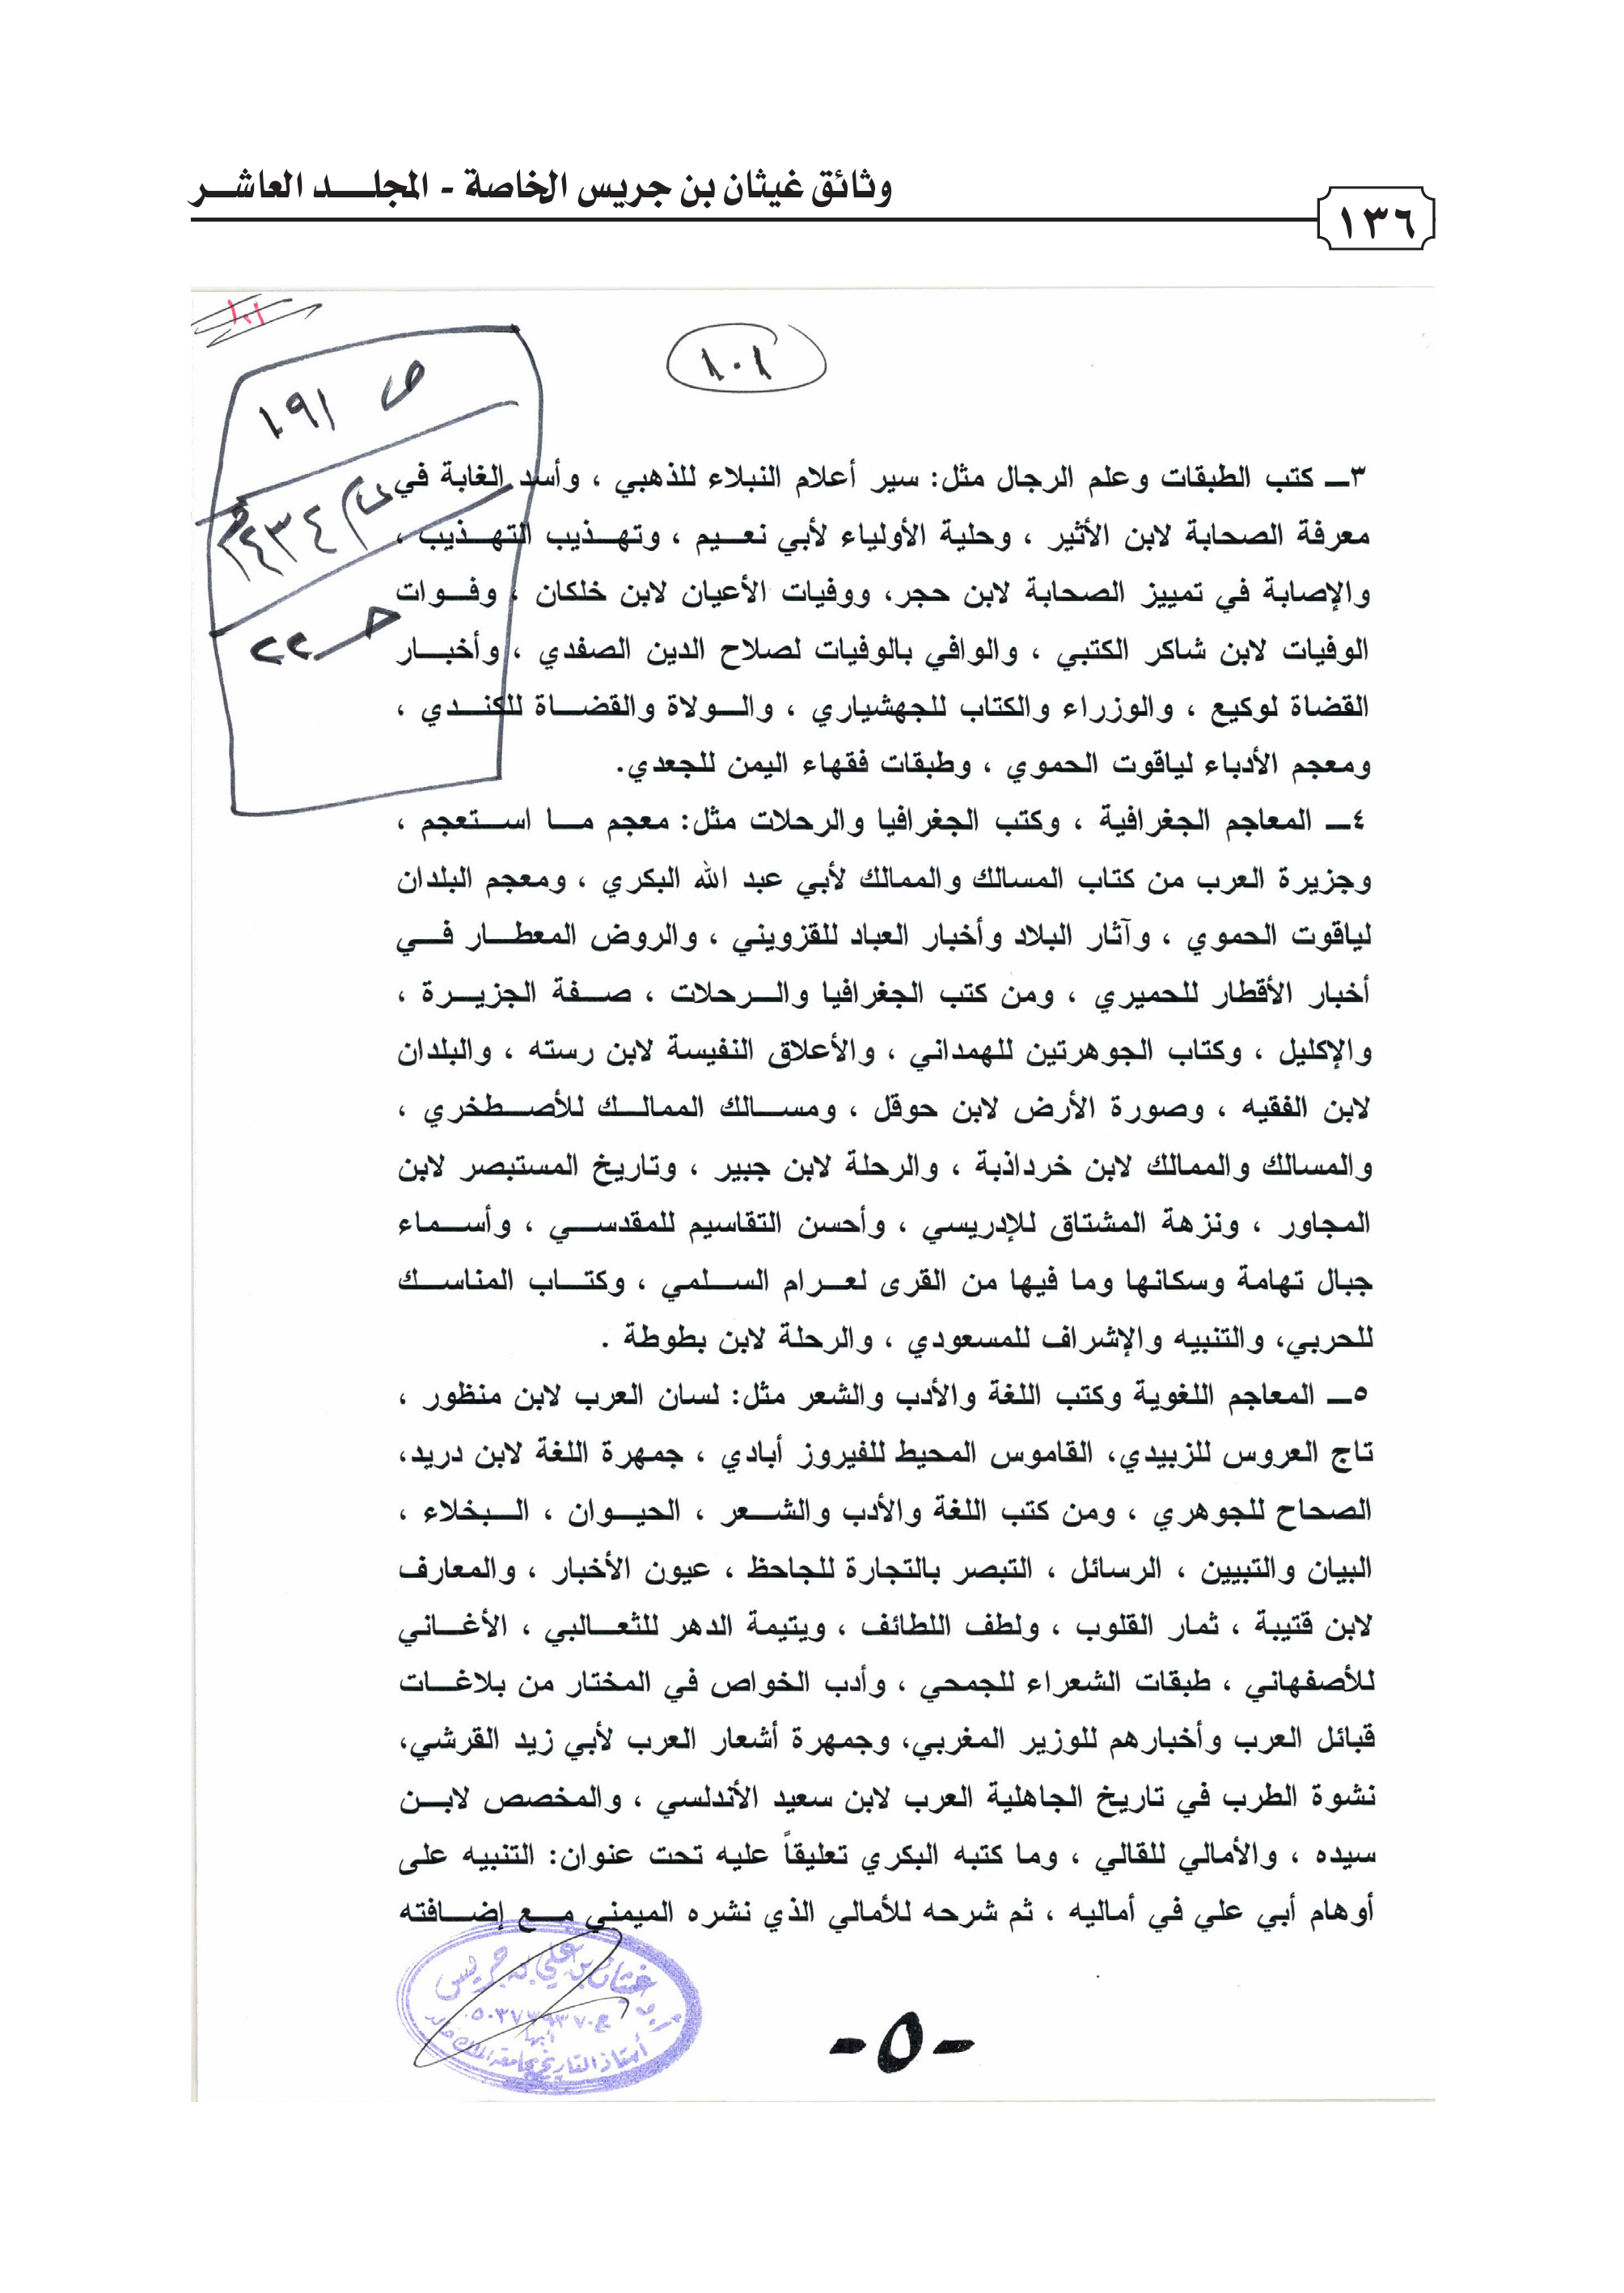 وثائق غيثان بن جريس الخاصة - المجلد العاشر
١٣٦
١٠١
١٠١
ص ١٩١
١٤٣٤
حـ ٢٢
٣ـ كتب الطبقات وعلم الرجال مثل: سير أعلام النبلاء للذهبي ، وأسد الغابة في
معرفة الصحابة لابن الأثير ، وحلية الأولياء لأبي نعيم ، وتهذيب التهذيب ،
والإصابة في تمييز الصحابة لابن حجر، ووفيات الأعيان لابن خلكان ، وفوات
الوفيات لابن شاكر الكتبي ، والوافي بالوفيات لصلاح الدين الصفدي ، وأخبار
القضاة لوكيع ، والوزراء والكتاب للجهشياري ، والولاة والقضاة للكندي ،
ومعجم الأدباء لياقوت الحموي ، وطبقات فقهاء اليمن للجعدي.
٤ـ المعاجم الجغرافية ، وكتب الجغرافيا والرحلات مثل: معجم ما استعجم ،
وجزيرة العرب من كتاب المسالك والممالك لأبي عبد الله البكري ، ومعجم البلدان
لياقوت الحموي ، وآثار البلاد وأخبار العباد للقزويني ، والروض المعطار في
أخبار الأقطار للحميري ، ومن كتب الجغرافيا والرحلات ، صفة الجزيرة ،
والإكليل ، وكتاب الجوهرتين للهمداني ، والأعلاق النفيسة لابن رسته ، والبلدان
لابن الفقيه ، وصورة الأرض لابن حوقل ، ومسالك الممالك للأصطخري ،
والمسالك والممالك لابن خرداذبة ، والرحلة لابن جبير ، وتاريخ المستبصر لابن
المجاور ، ونزهة المشتاق للإدريسي ، وأحسن التقاسيم للمقدسي ، وأسماء
جبال تهامة وسكانها وما فيها من القرى لعرام السلمي ، وكتاب المناسك
للحربي، والتنبيه والإشراف للمسعودي ، والرحلة لابن بطوطة .
٥ـ المعاجم اللغوية وكتب اللغة والأدب والشعر مثل: لسان العرب لابن منظور ،
تاج العروس للزبيدي، القاموس المحيط للفيروز أبادي ، جمهرة اللغة لابن دريد،
الصحاح للجوهري ، ومن كتب اللغة والأدب والشعر ، الحيوان ، البخلاء ،
البيان والتبيين ، الرسائل ، التبصر بالتجارة للجاحظ ، عيون الأخبار ، والمعارف
لابن قتيبة ، ثمار القلوب ، ولطف اللطائف ، ويتيمة الدهر للثعالبي ، الأغاني
للأصفهاني ، طبقات الشعراء للجمحي ، وأدب الخواص في المختار من بلاغات
قبائل العرب وأخبارهم للوزير المغربي، وجمهرة أشعار العرب لأبي زيد القرشي،
نشوة الطرب في تاريخ الجاهلية العرب لابن سعيد الأندلسي ، والمخصص لابن
سيده ، والأمالي للقالي ، وما كتبه البكري تعليقاً عليه تحت عنوان: التنبيه على
أوهام أبي علي في أماليه ، ثم شرحه للأمالي الذي نشره الميمني مع إضافته
غيثان بن علي بن جريس
أبها
أستاذ التاريخ بجامعة الملك
-٥-